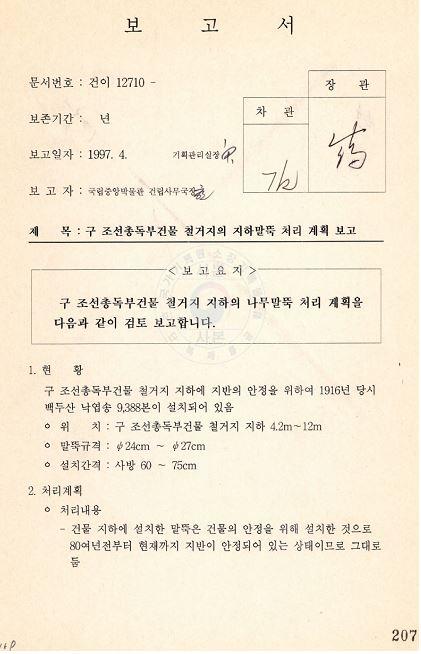 보 고 서
문서번호 : 건이 12710 -
장 관
보존기간 : 년
차 관
보고일자 : 1997. 4.
기획관리실장
보 고 자 : 국립중앙박물관 건립사무국장
제 목 : 구 조선총독부건물 철거지의 지하말뚝 처리 계획 보고
< 보 고 요 지 >
구 조선총독부건물 철거지 지하의 나무말뚝 처리 계획을
다음과 같이 검토 보고합니다.
사본
1. 현 황
구 조선총독부건물 철거지 지하에 지반의 안정을 위하여 1916년 당시
백두산 낙엽송 9,388본이 설치되어 있음
o 위 치 : 구 조선총독부건물 철거지 지하 4.2m~12m
o 말뚝규격 : φ24cm ~ φ27cm
o 설치간격 : 사방 60 ~ 75cm
2. 처리계획
o 처리내용
- 건물 지하에 설치한 말뚝은 건물의 안정을 위해 설치한 것으로
80여년전부터 현재까지 지반이 안정되어 있는 상태이므로 그대로
둠
207